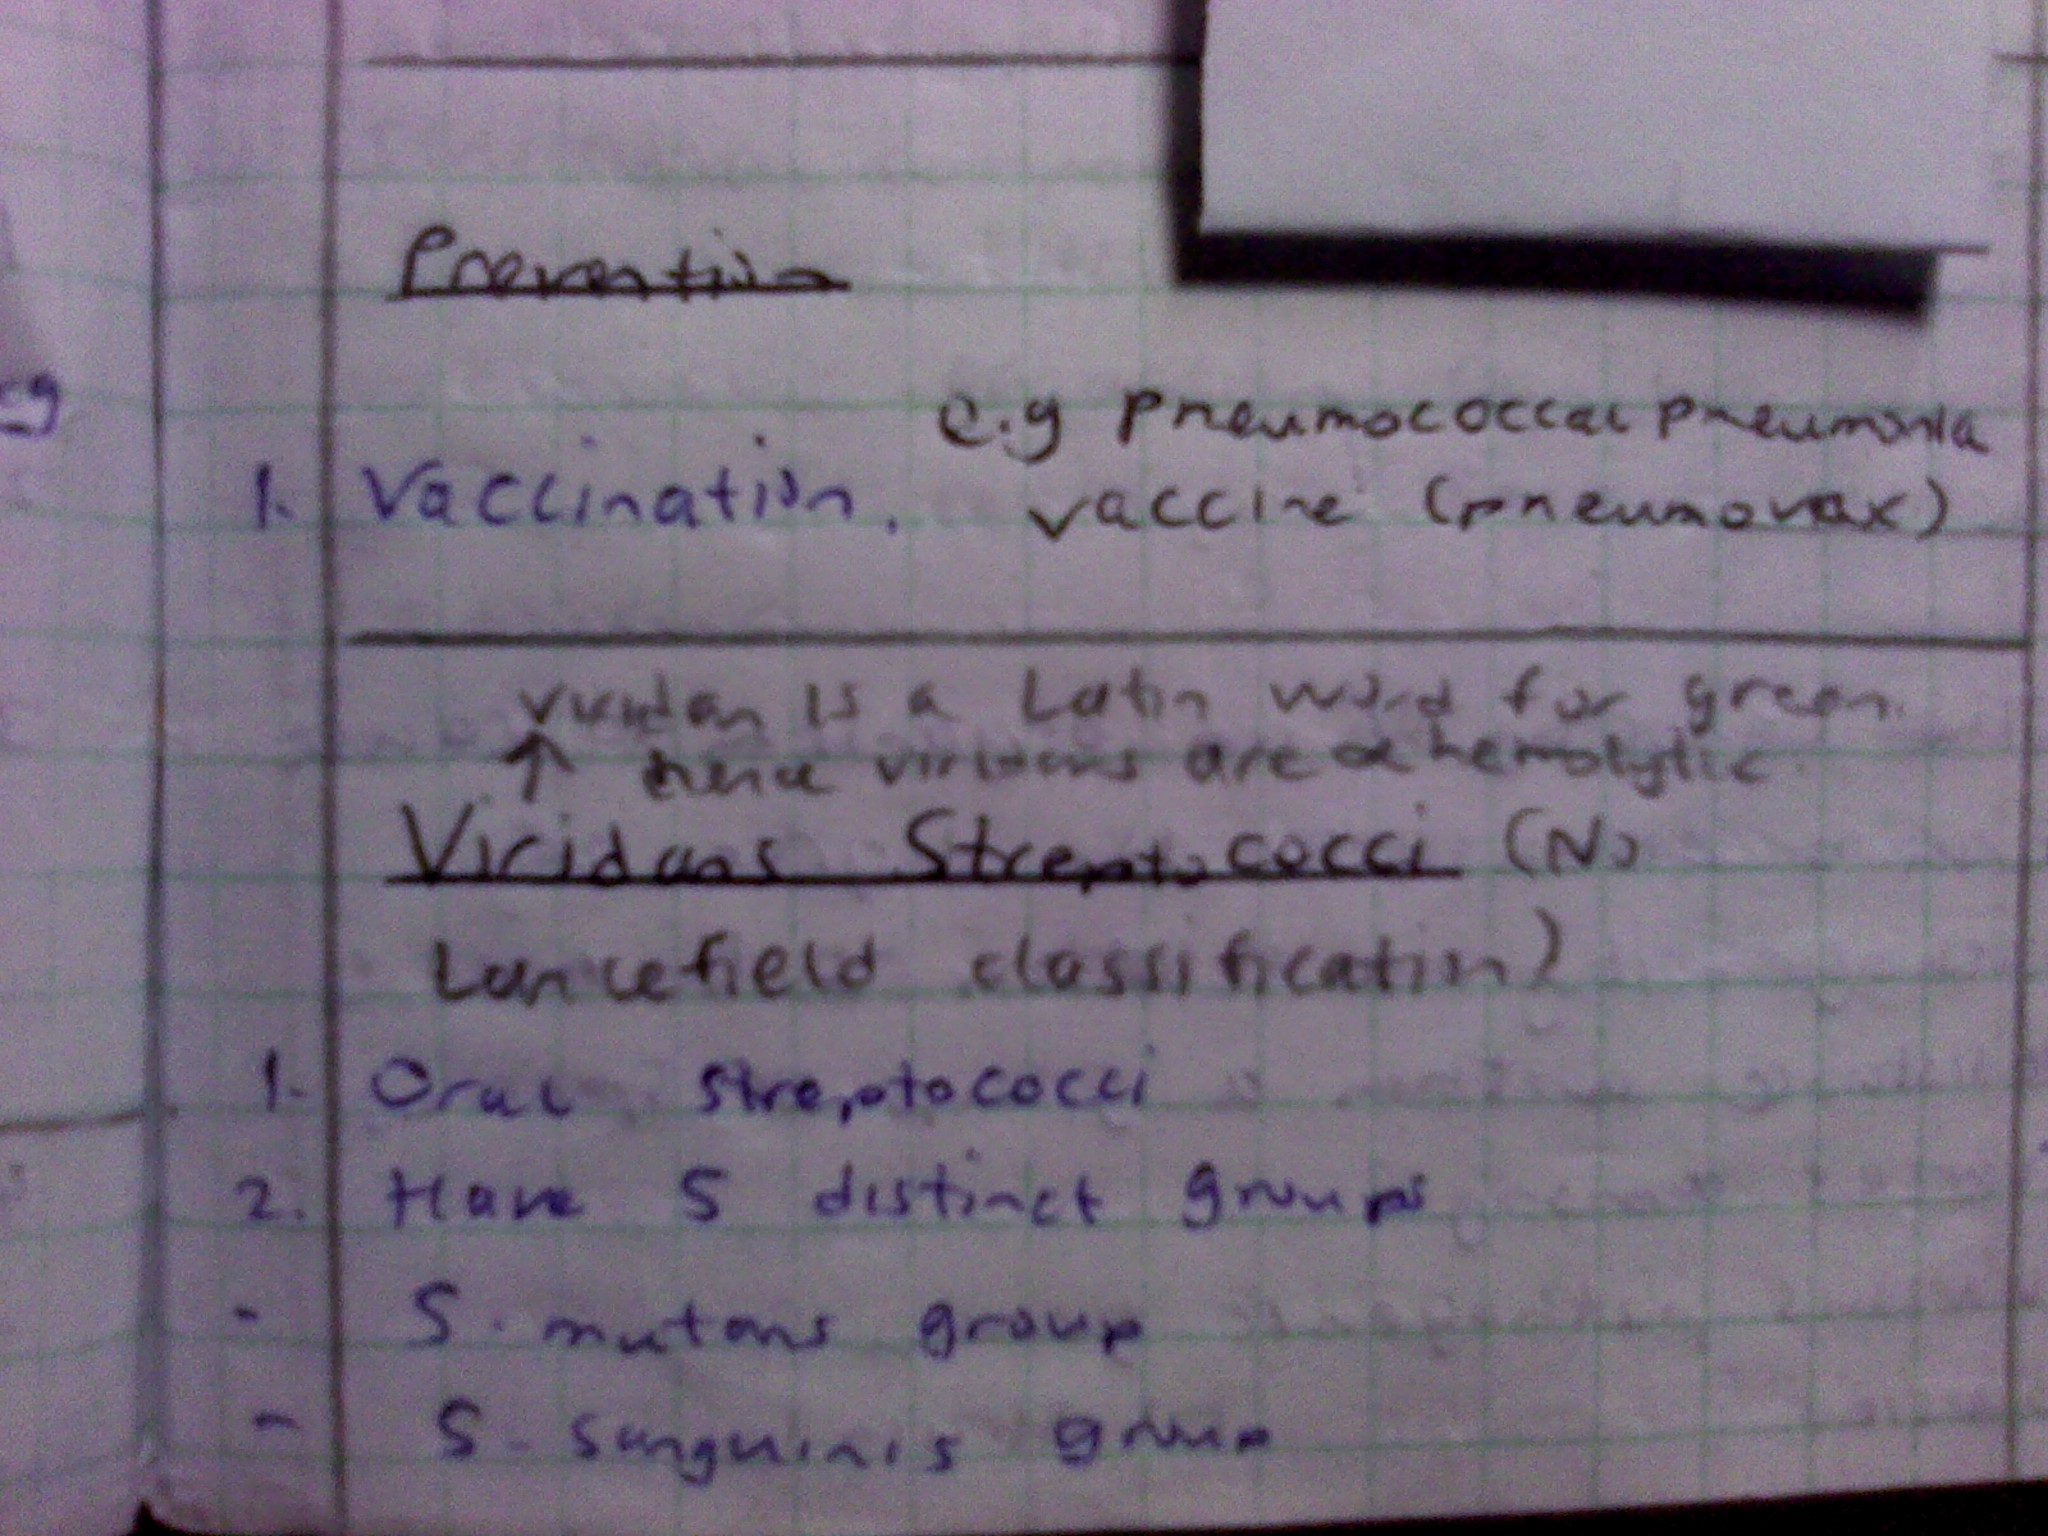 Prevention
e.g pneumococcal pneumonia
1. Vaccination. vaccine (pneumovax)
viridan is a Latin word for green.
↑ hence viridans are α hemolytic.
Viridans Streptococci (No
Lancefield classification)
1. Oral streptococci
2. Have 5 distinct groups
- S. mutans group
- S. sanguinis group